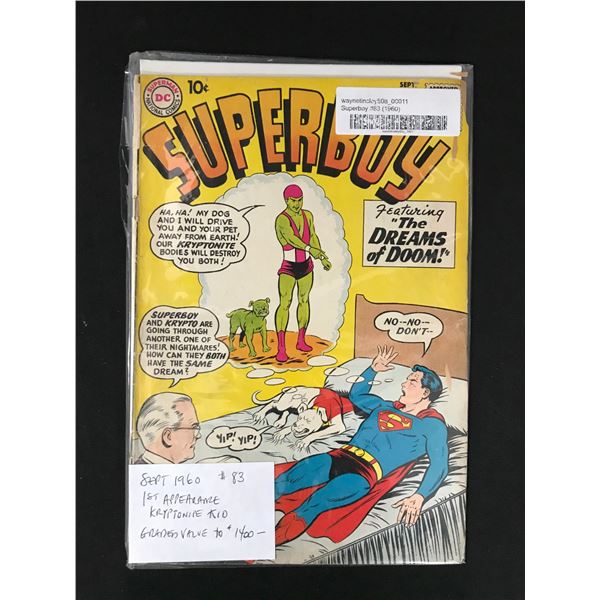 SUPERMAN
DC
NATIONAL COMICS
10¢
SEPT.
APPROVED
waynetindley508_00011
Superboy #83 (1960)
SUPERBOY
HA, HA! MY DOG
AND I WILL DRIVE
YOU AND YOUR PET
AWAY FROM EARTH!
OUR KRYPTONITE
BODIES WILL DESTROY
YOU BOTH!
Featuring
"The
DREAMS
of DOOM!"
SUPERBOY
AND KRYPTO ARE
GOING THROUGH
ANOTHER ONE OF
THEIR NIGHTMARES!
HOW CAN THEY BOTH
HAVE THE SAME
DREAM?
NO--NO--
DON'T--
YIP! YIP!
S
SEPT 1960 #83
1ST APPEARANCE
KRYPTONITE KID
GRADED VALUE to $1400-